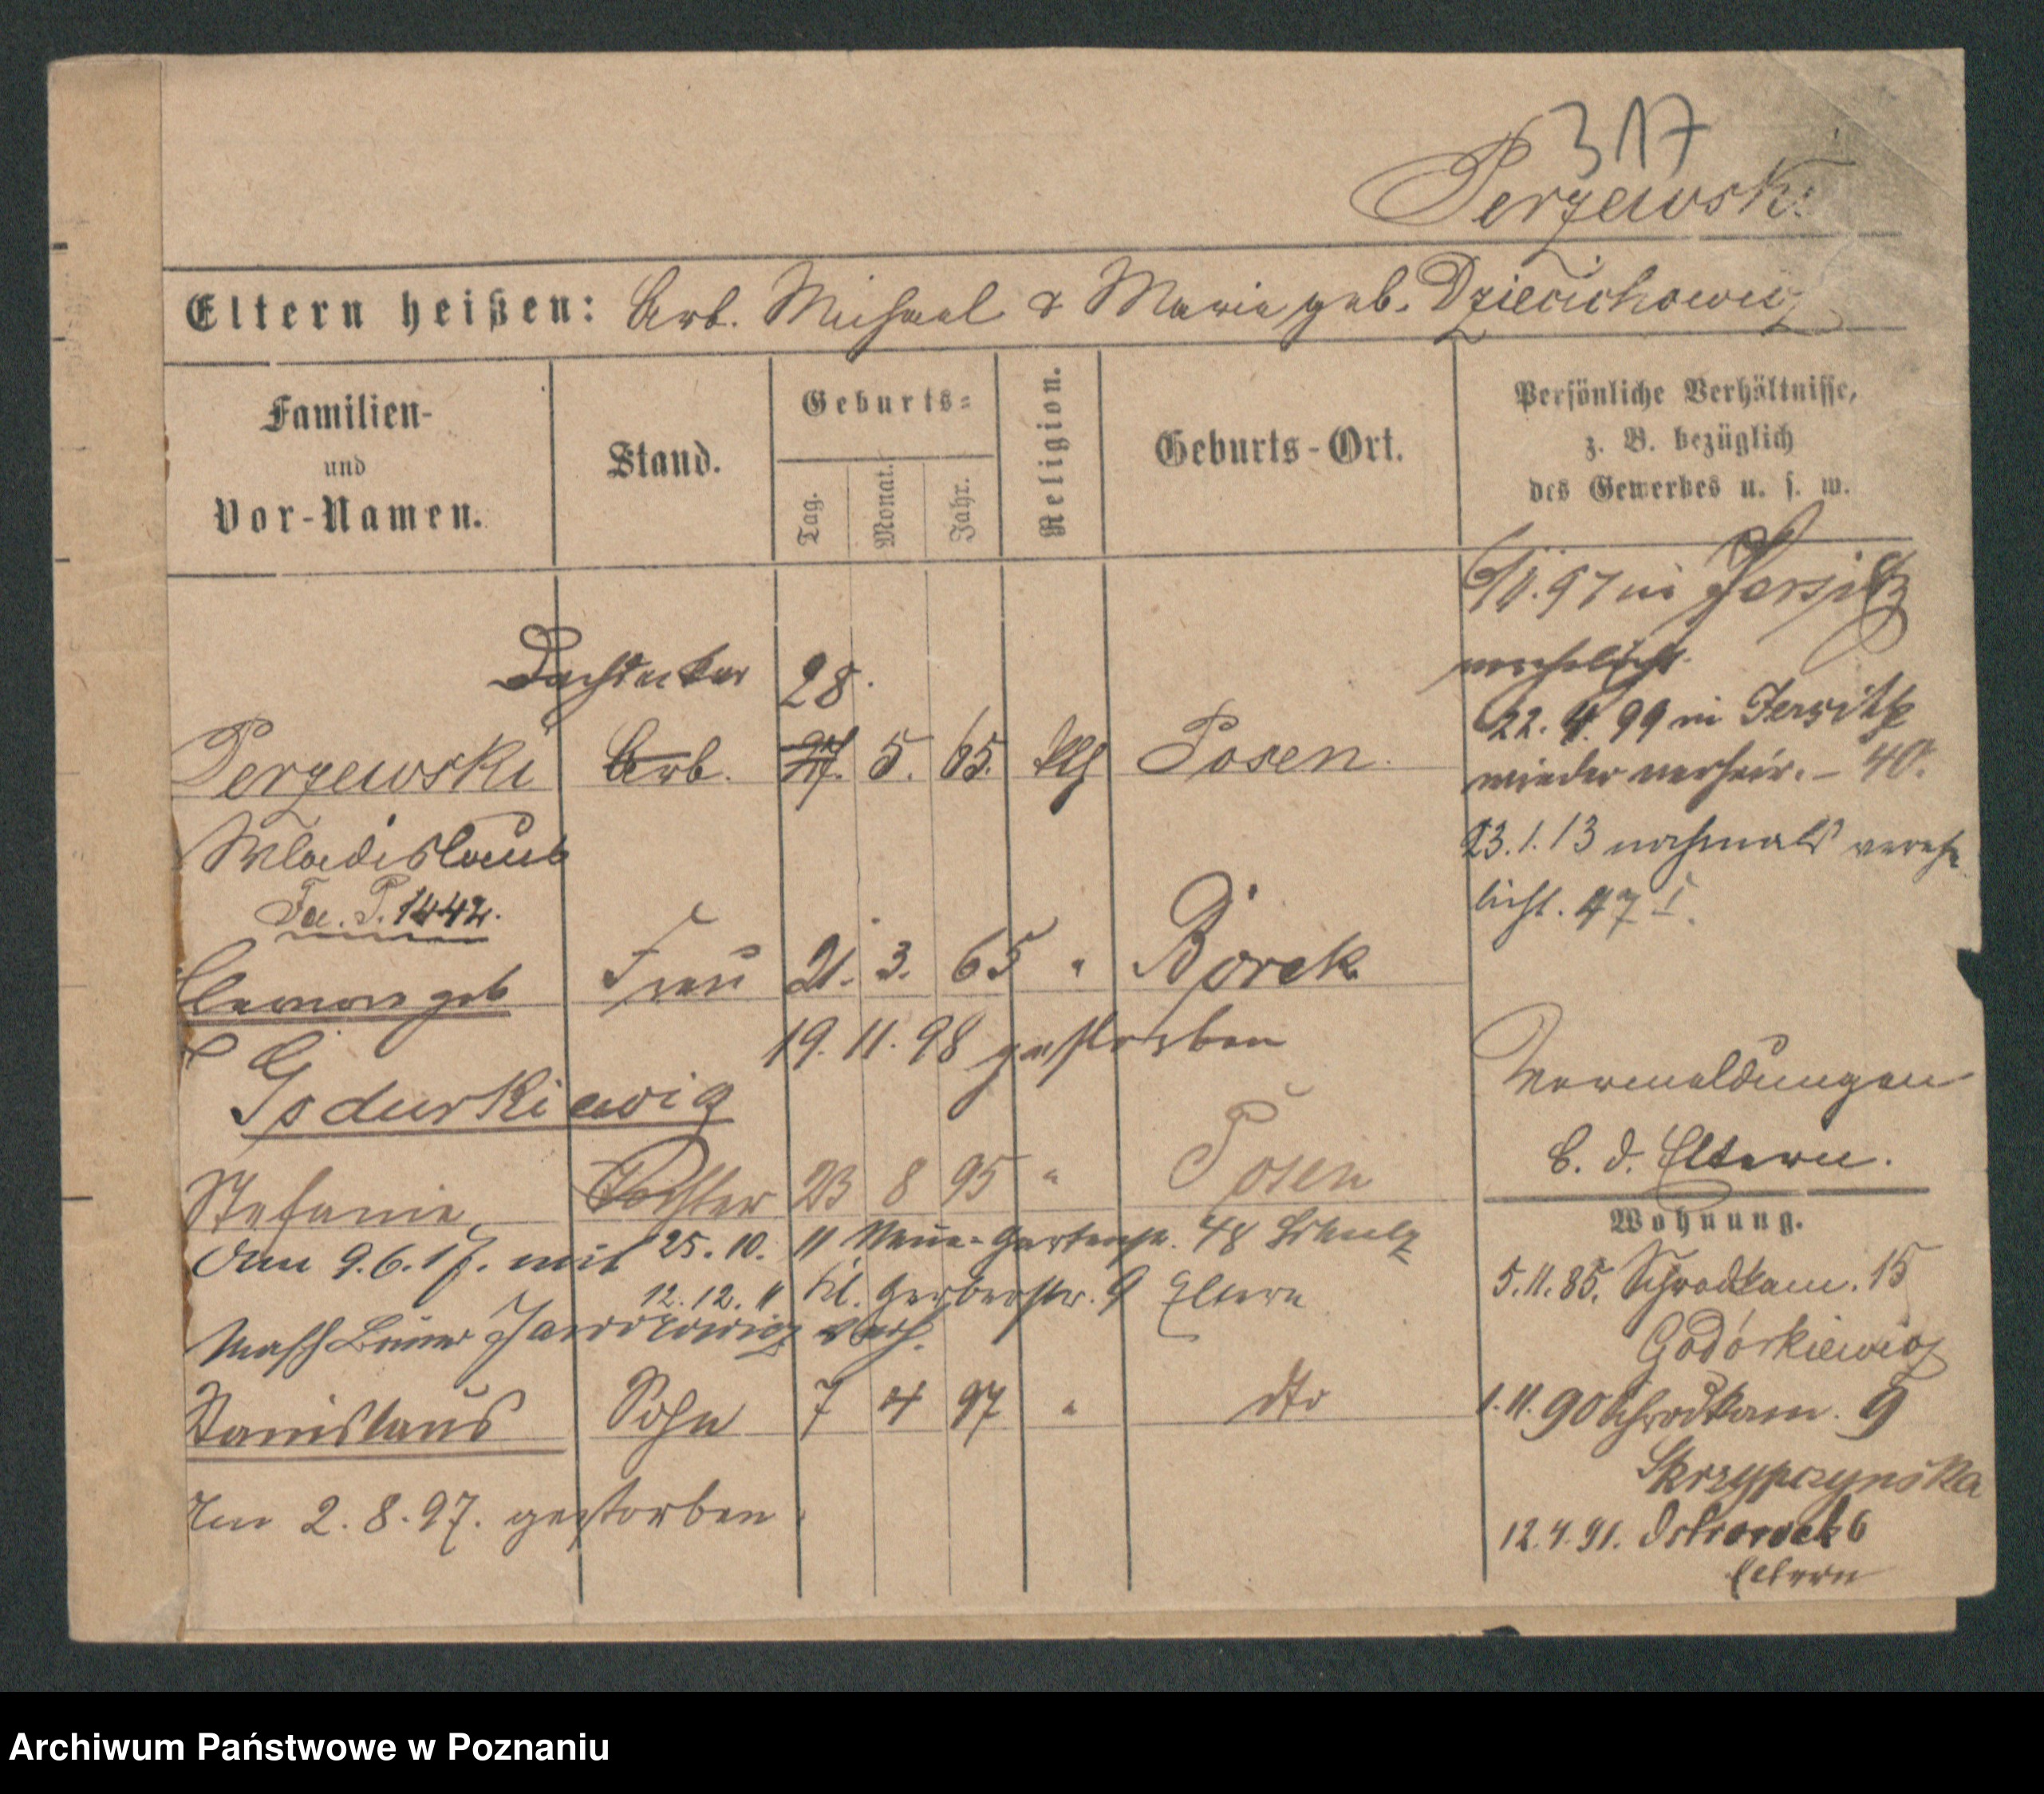 317
Perzewski
Eltern heißen: Arb. Michael & Marie geb. Dziecichowicz
Familien-
und
Vor-Namen.
Stand.
Geburts-
Tag. Monat. Jahr.
Religion.
Geburts-Ort.
Persönliche Verhältnisse,
z. B. bezüglich
des Gewerbes u. s. w.
97 in Jersitz
verehelicht.
22. 4. 99 in Jersitz
wieder verheir. – 40.
23.1.13 nochmals verehe
licht. 47 I.
Dachdecker 28.
Perzewski Arb. 27. 5. 65. kth Posen.
Wladislaus
Fa. P. 1442.
geb Frau 21. 3. 65 " Borek
19. 11. 98 gestorben
Godurkiewicz
Vermeldungen
b. d. Eltern.
Stefanie, Tochter 23 8 95 " Posen
Am 9.6.17. mit 25. 10. 11 Neue-Gartenstr. 48 Schulz
12. 12. 11 Kl. Gerberstr. 9 Eltern
verh.
Stanislaus Sohn 7 4 97 " dto
Am 2. 8. 97. gestorben.
Wohnung.
5.11.85. Schrodkam. 15
Godórkiewicz
1.11.90 Schrodkam. 9
Skrzypczynska
12.4.91. Ostrowek 6
Eltern
Archiwum Państwowe w Poznaniu